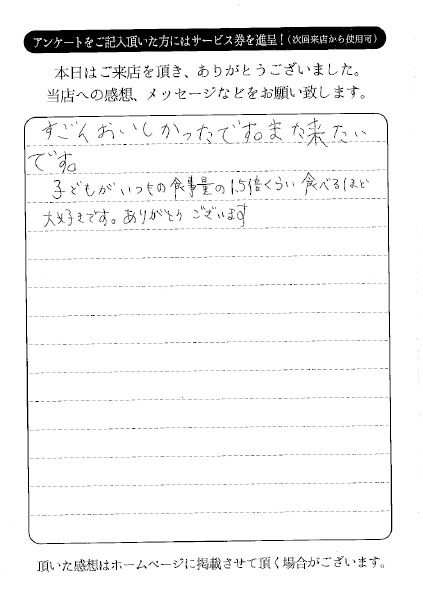 アンケートをご記入頂いた方にはサービス券を進呈！（次回来店から使用可）
本日はご来店を頂き、ありがとうございました。
当店への感想、メッセージなどをお願い致します。
すごくおいしかったです。また来たい
です。
子どもがいつもの食事量の1.5倍くらい食べるほど
大好きです。ありがとうございます
頂いた感想はホームページに掲載させて頂く場合がございます。